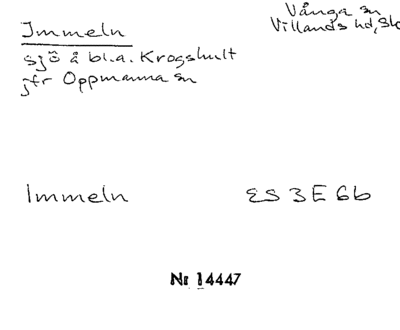 Immeln
Vånga sn
Villands hd, Sk
sjö å bl.a. Krogshult
jfr Oppmanna sn
Immeln
ES 3 E 6b
Nr 14447